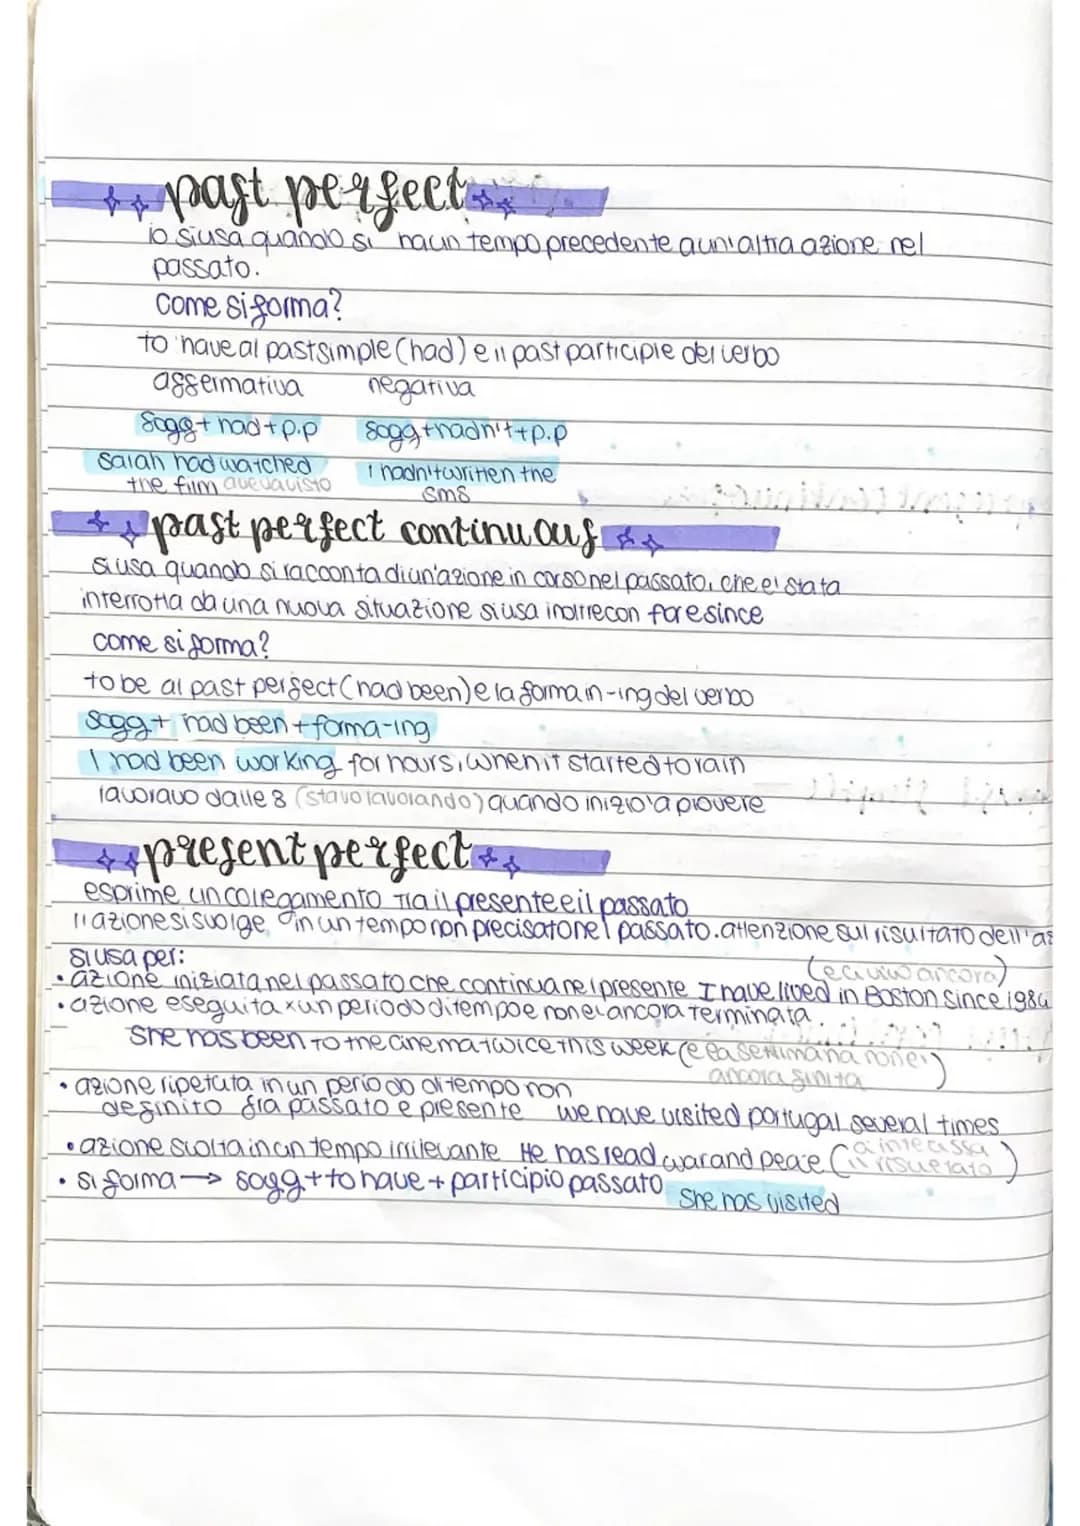 past perfect
lo si usa quando si ha un tempo precedente a un'altra azione nel
passato.
come si forma?
to have al past simple (had) e il past participle del verbo
affermativa negativa
sogg + had + p.p sogg + hadn't + p.p
Sarah had watched I hadn't written the
the film aveva visto sms
past perfect continuous
si usa quando si racconta di un'azione in corso nel passato, che e' stata
interrotta da una nuova situazione si usa inoltre con for e since
come si forma?
to be al past perfect (had been) e la forma in -ing del verbo
sogg + had been + forma -ing
I had been working for hours, when it started to rain
lavoravo dalle 8 (stavo lavorando) quando inizio' a piovere
present perfect
esprime un collegamento tra il presente e il passato
l'azione si svolge in un tempo non precisato nel passato. attenzione sul risultato dell'as
si usa per: (e ci vivo ancora)
• azione iniziata nel passato che continua nel presente I have lived in Boston since 1984
• azione eseguita x un periodo di tempo e non e' ancora terminata
She has been to the cinema twice this week (e la settimana non e'
ancora finita)
• azione ripetuta in un periodo di tempo non
definito fra passato e presente we have visited portugal several times
• azione svolta in un tempo irrilevante He has read war and peace (ci interessa
il risultato)
• si forma → sogg + to have + participio passato She has visited